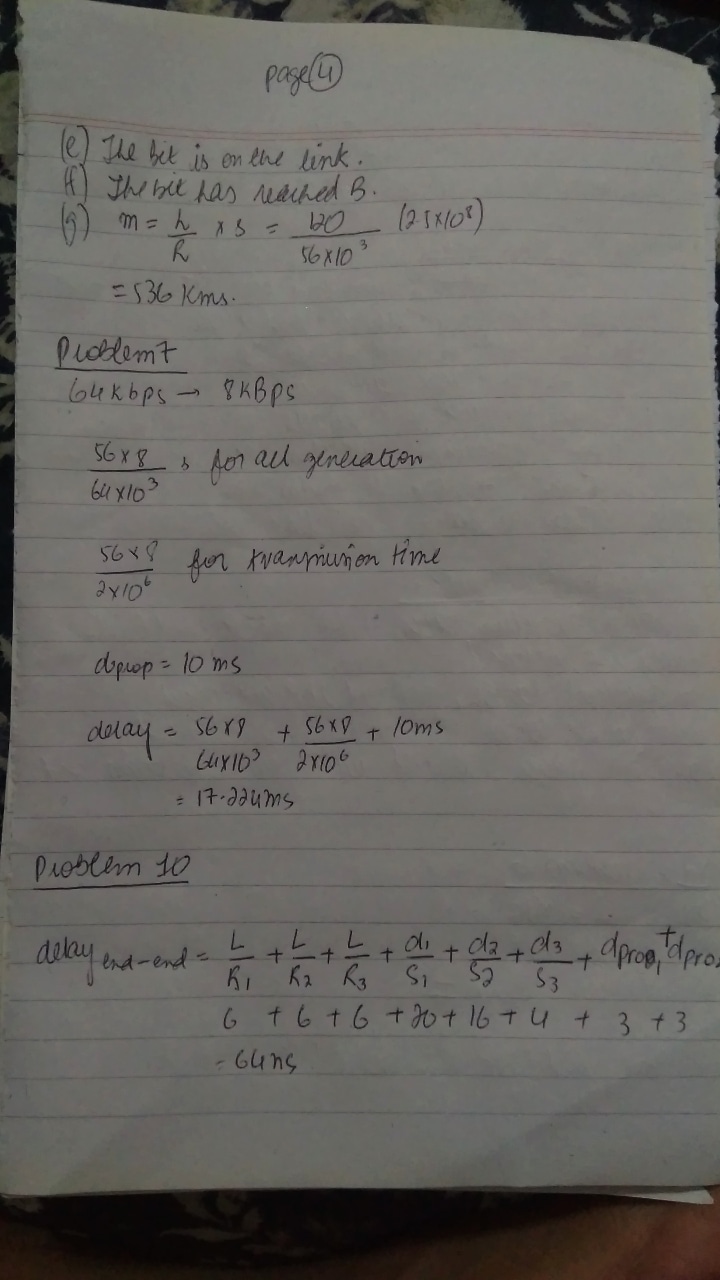 page 4
(e) The bit is on the link.
(f) The bit has reached B.
(g) m = L/R × s = 120/56×10³ (2.5×10⁸)
= 536 Kms.
Problem 7
64kbps → 8kBps
56×8/64×10³ s for all generation
56×8/2×10⁶ for transmission time
dprop = 10 ms
delay = 56×8/64×10³ + 56×8/2×10⁶ + 10ms
= 17.224ms
Problem 10
delay end-end = L/R₁ + L/R₂ + L/R₃ + d₁/S₁ + d₂/S₂ + d₃/S₃ + dproc₁ + dproc
6 + 6 + 6 + 20 + 16 + 4 + 3 + 3
= 64ms